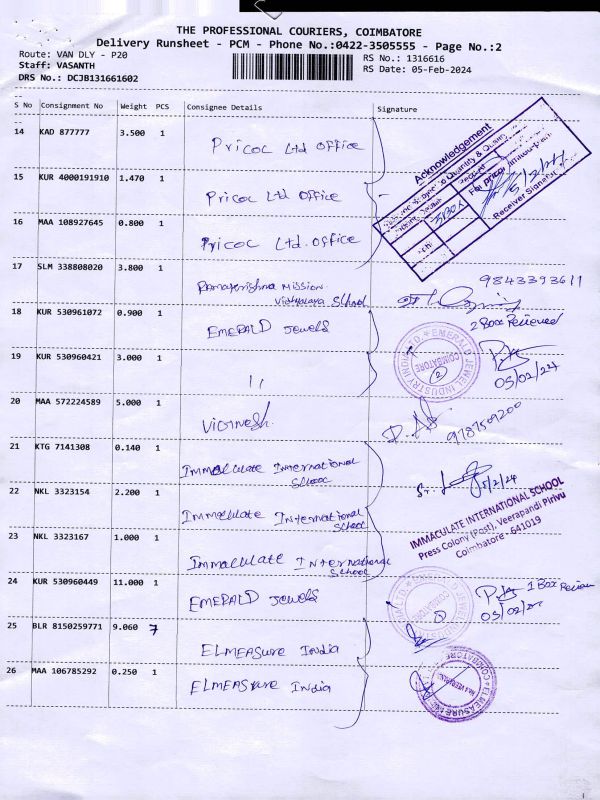 THE PROFESSIONAL COURIERS, COIMBATORE
Delivery Runsheet - PCM - Phone No.:0422-3505555 - Page No.:2
Route: VAN DLY - P20
Staff: VASANTH
DRS No.: DCJB131661602
RS No.: 1316616
RS Date: 05-Feb-2024
S No Consignment No Weight PCS Consignee Details Signature
14 KAD 877777 3.500 1 Pricol Ltd Office
15 KUR 4000191910 1.470 1 Pricol Ltd Office
16 MAA 108927645 0.800 1 Pricol Ltd. office
Acknowledgement
Receiver Signature
17 SLM 338808020 3.800 1 Ramakrishna Mission
Vidhyalaya School
9843393611
18 KUR 530961072 0.900 1 EMERALD Jewels
2 Box Recieved
EMERALD JEWEL INDUSTRY INDIA LTD.
COIMBATORE
2
05/02/24
19 KUR 530960421 3.000 1 ( (
20 MAA 572224589 5.000 1 Vignesh
9787509200
21 KTG 7141308 0.140 1 Immaculate International
School
5/2/24
22 NKL 3323154 2.200 1 Immaculate International
School
IMMACULATE INTERNATIONAL SCHOOL
Press Colony (Post), Veerapandi Pirivu
Coimbatore - 641019
23 NKL 3323167 1.000 1 Immaculate International
School
24 KUR 530960449 11.000 1 EMERALD Jewels
1 Box
25 BLR 8150259771 9.060 7 ELMEASURE India
26 MAA 106785292 0.250 1 ELMEASURE India